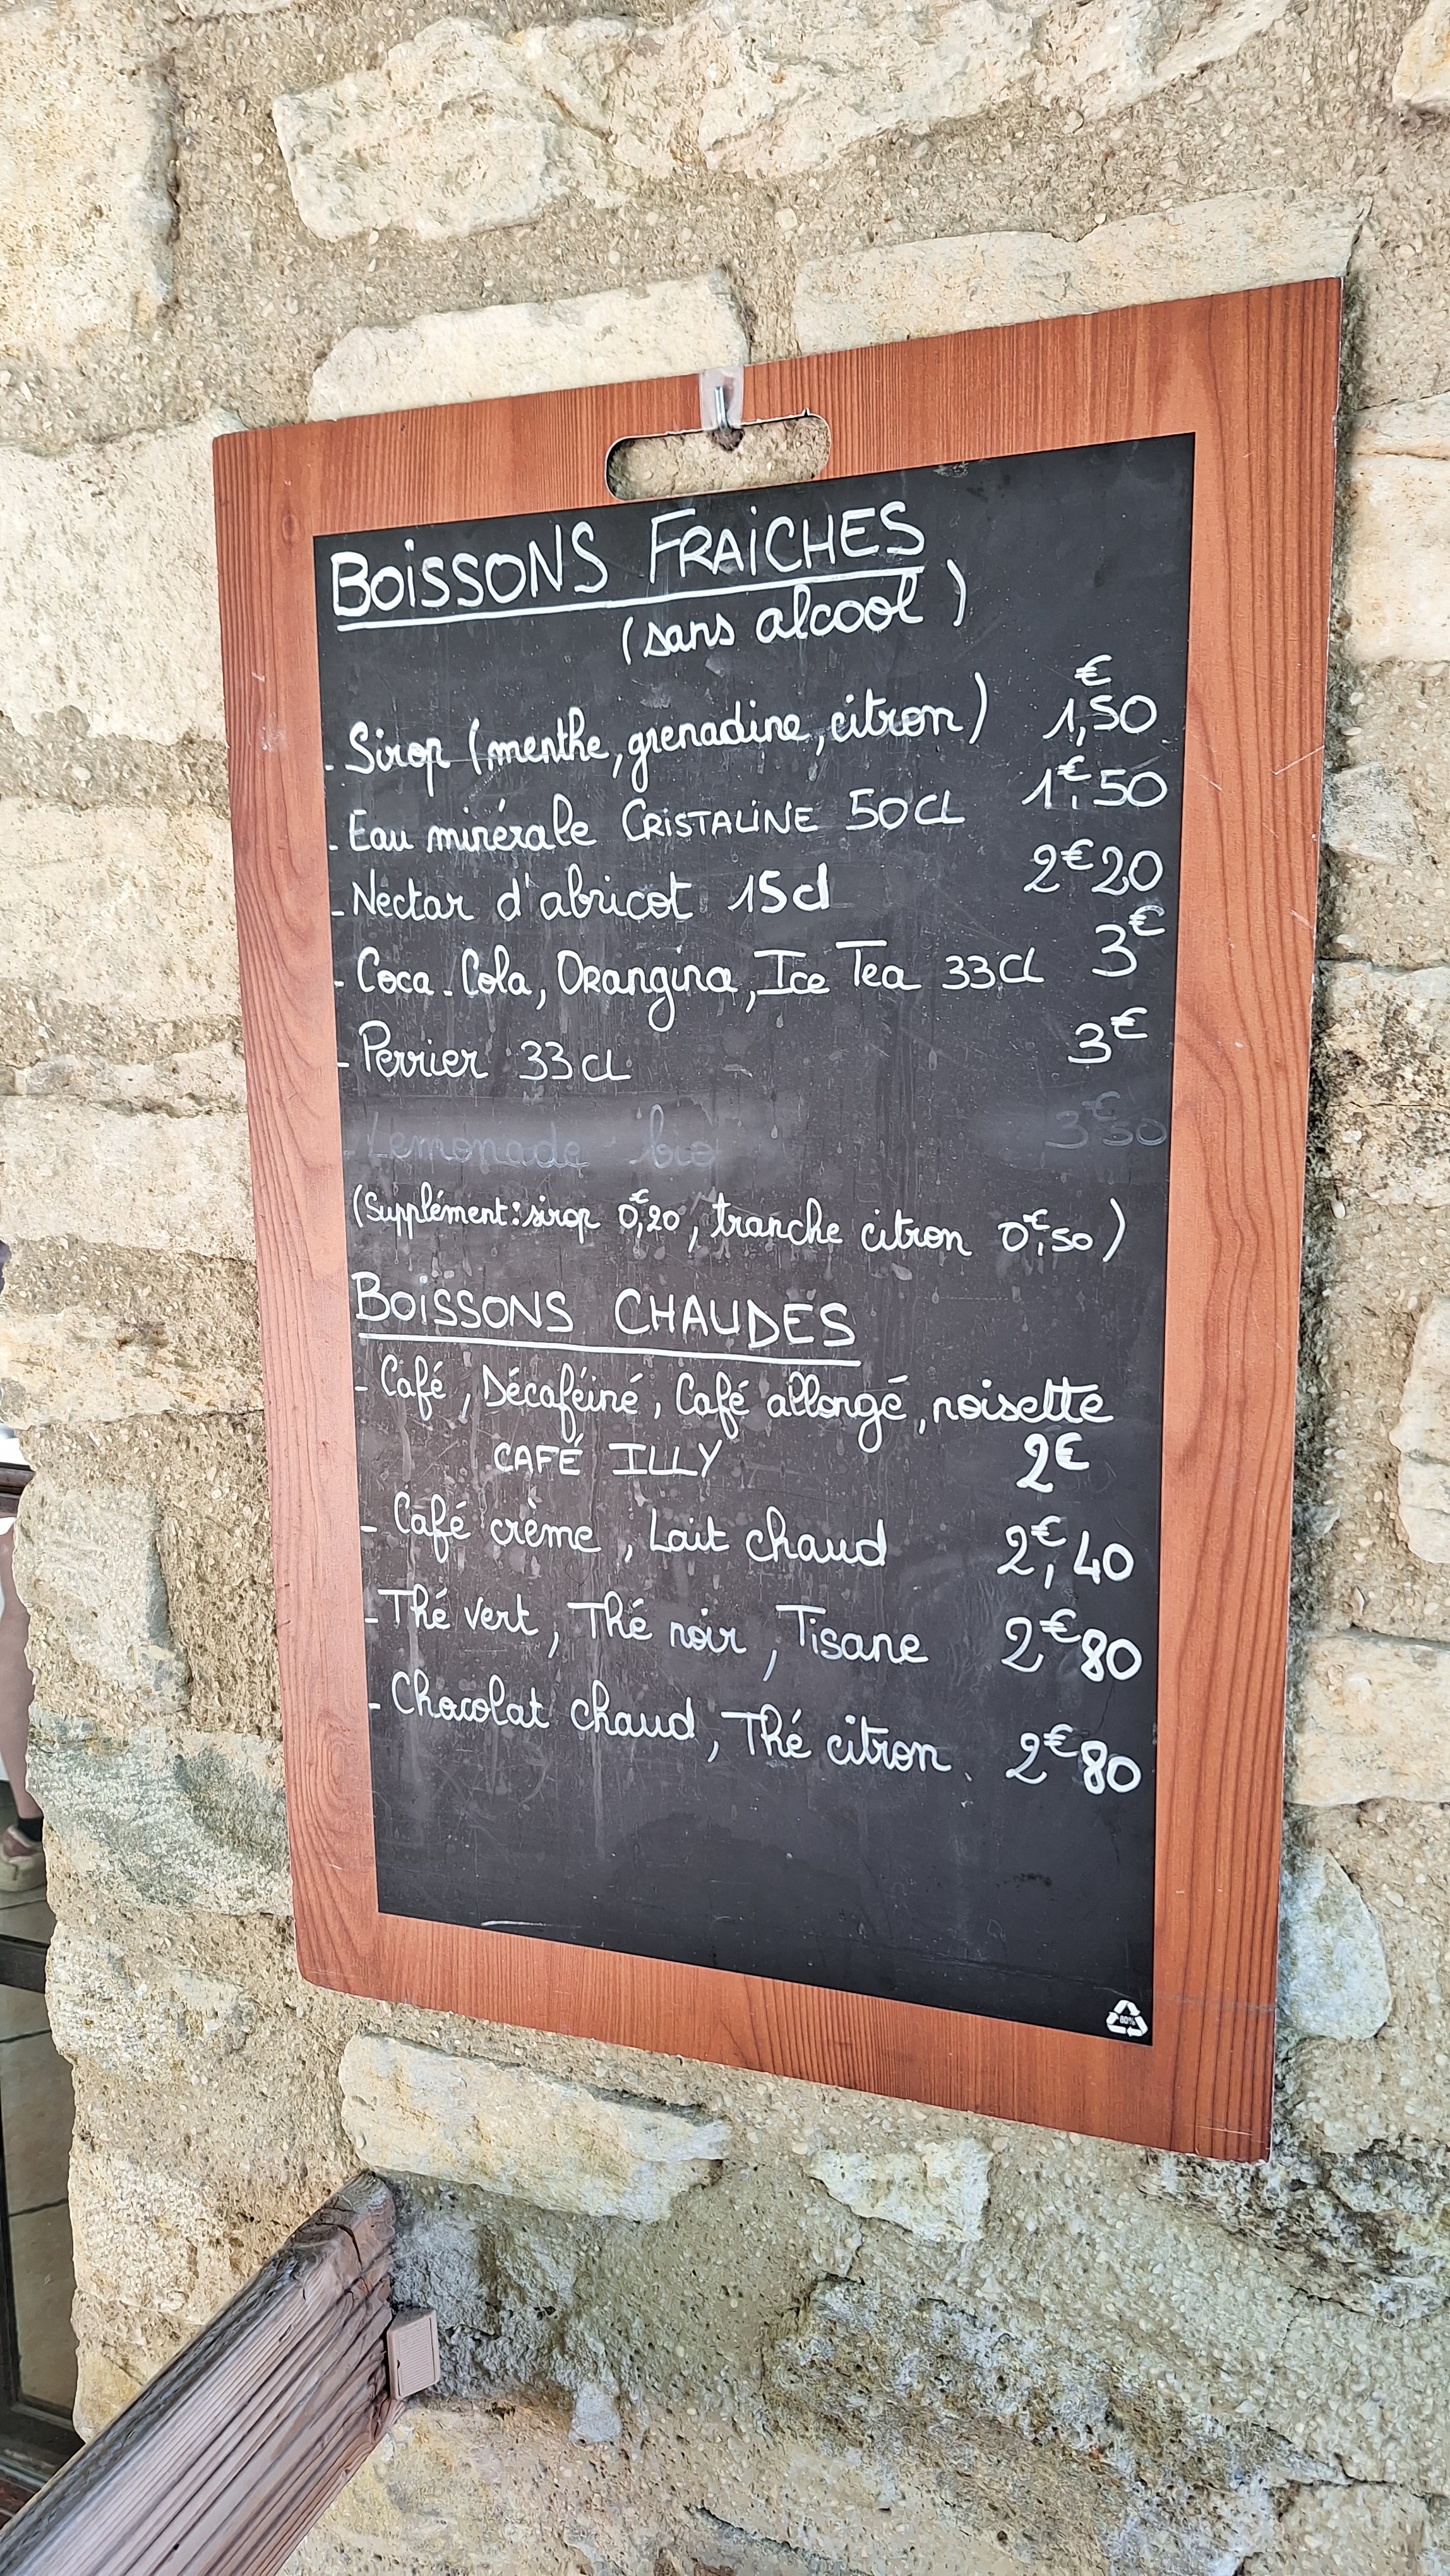 BOISSONS FRAICHES
(sans alcool)
- Sirop (menthe, grenadine, citron) 1,€50
- Eau minérale CRISTALINE 50CL 1€,50
- Nectar d'abricot 15cl 2€20
- Coca-Cola, Orangina, Ice Tea 33Cl 3€
- Perrier 33CL 3€
- Lemonade bio 3€50
(Supplément: sirop 0€,20, tranche citron 0€,50)
BOISSONS CHAUDES
- Café, Décaféiné, Café allongé, noisette
CAFÉ ILLY 2€
- Café crème, Lait chaud 2€,40
- Thé vert, Thé noir, Tisane 2€80
- Chocolat chaud, Thé citron. 2€80
80%